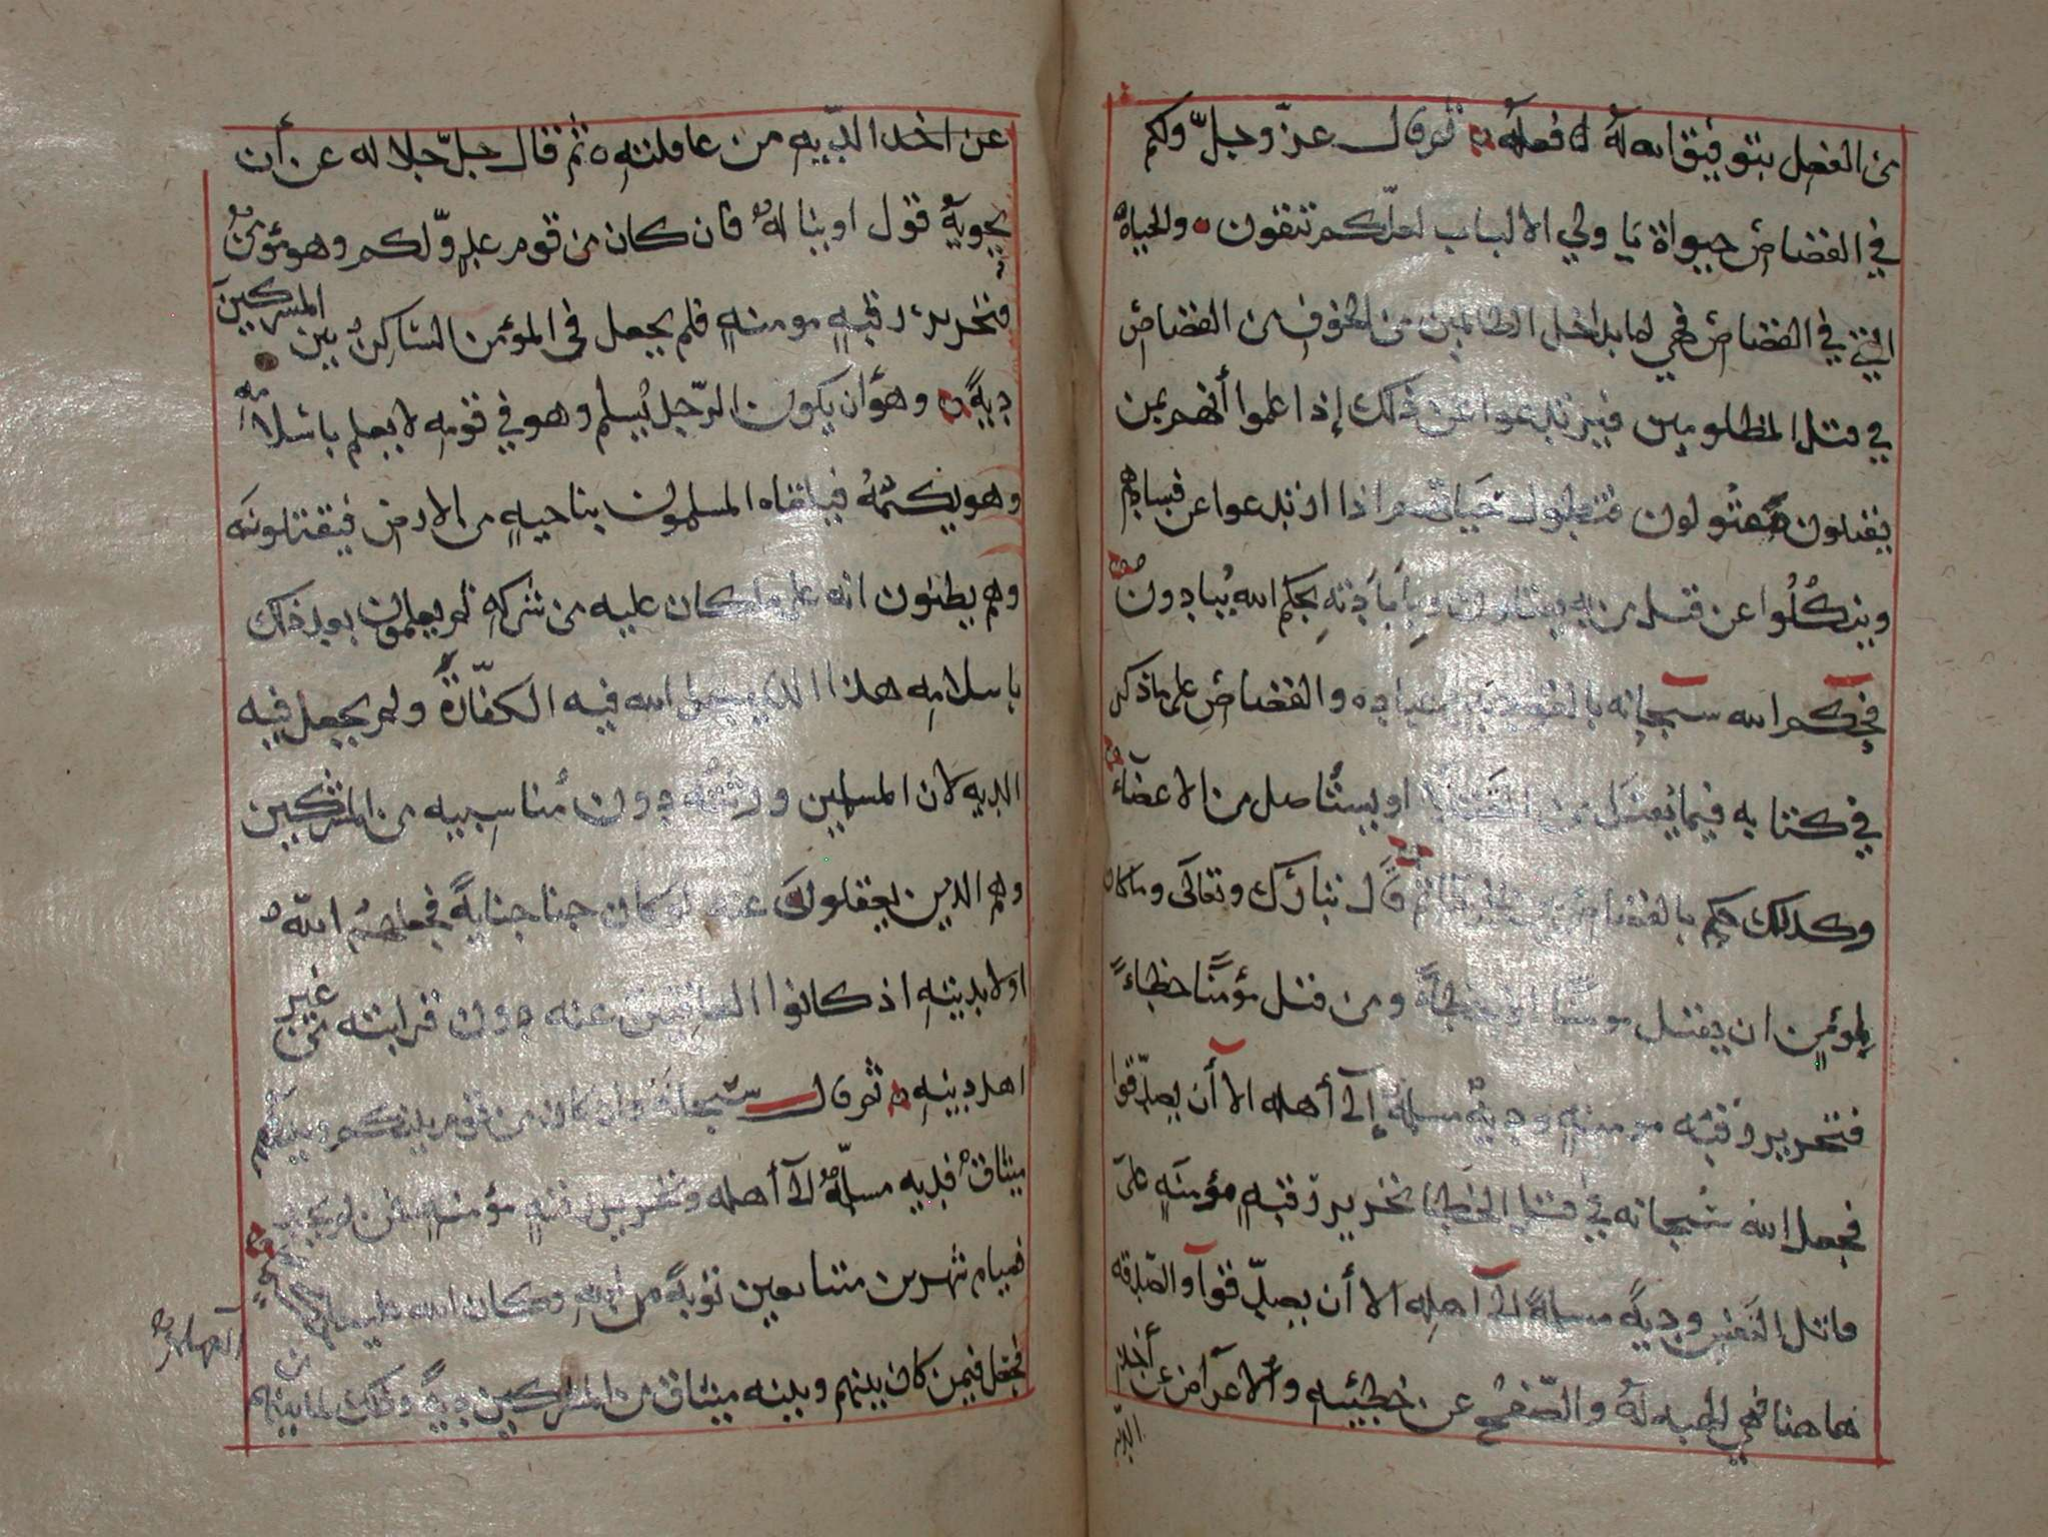 من الفضل بتوفيق الله له اذ فعله ثم قال عز وجل ولكم
في القصاص حيواة يا ولي الالباب لعلكم تتقون والحياة
التي في القصاص فهي لما يداخل الظالمين من الخوف من القصاص
في قتل المظلومين فيرتدعوا عن ذلك إذا علموا أنهم بمن
يقتلون مقتولون فتطول حياتهم اذا ارتدعوا عن فسادهم
وينكلوا عن قتل من به يقتلون وبإبادته بحكم الله يبادون
فحكم الله سبحانه بالقصاص بين عباده والقصاص على ما ذكر
في كتابه فيما يفعل من او يستأصل من الاعضآء
وكذلك حكم بالقصاص ثم قال تبارك وتعالى وما كان
لمؤمن ان يقتل مومنا الا خطاءً ومن قتل مؤمنًا خطاءً
فتحرير رقبة مومنةٍ ودية مسلمة إلى أهله الا أن يصدقوا
فجعل الله سبحانه في قتل الخطا تحرير رقبةٍ مؤمنةٍ على
قاتل النفس ودية مسلمةً الى آهله الا أن يصدقوا والصدقة
هاهنا فهي الهبه له والصفح عن خطيئته والاعراض عن أخذ
الديه
عن اخذ الديه من عاقلته ثم قال جل جلاله عن أن
يحويه قول او يناله فان كان من قوم عدوّ لكم وهو مؤمن
فتحرير رقبةٍ مومنةٍ فلم يجعل في المؤمن الساكن بين المشركين
ديةً وهو أن يكون الرجل يسلم وهو في قومه لا يعلم باسلامه
وهو يكتمه فيلقاه المسلمون بناحيةٍ من الارض فيقتلونه
وهم يظنون انه على ما كان عليه من شركه ثم يعلمون بعد ذلك
باسلامه هذا الذي جعل الله فيه الكفارة ولم يجعل فيه
الديه لان المسلمين ورثته دون مناسبيه من المشركين
وهم الذين يعقلون عنه لو كان جنا جنايةً فجعلهم الله
اولا بديته اذ كانوا العاقلين عنه دون قرابته من غير
اهل دينه ثم قال سبحانه وان كان من قوم بينكم وبينهم
ميثاق فديه مسلمة الى أهله وتحرير رقبةٍ مؤمنةٍ فمن لم يجد
فصيام شهرين متتابعين توبةً من الله وكان الله عليما حكيما
فجعل فيمن كان بينهم وبينه ميثاق من المشركين ديةً وذلك لما بينهم